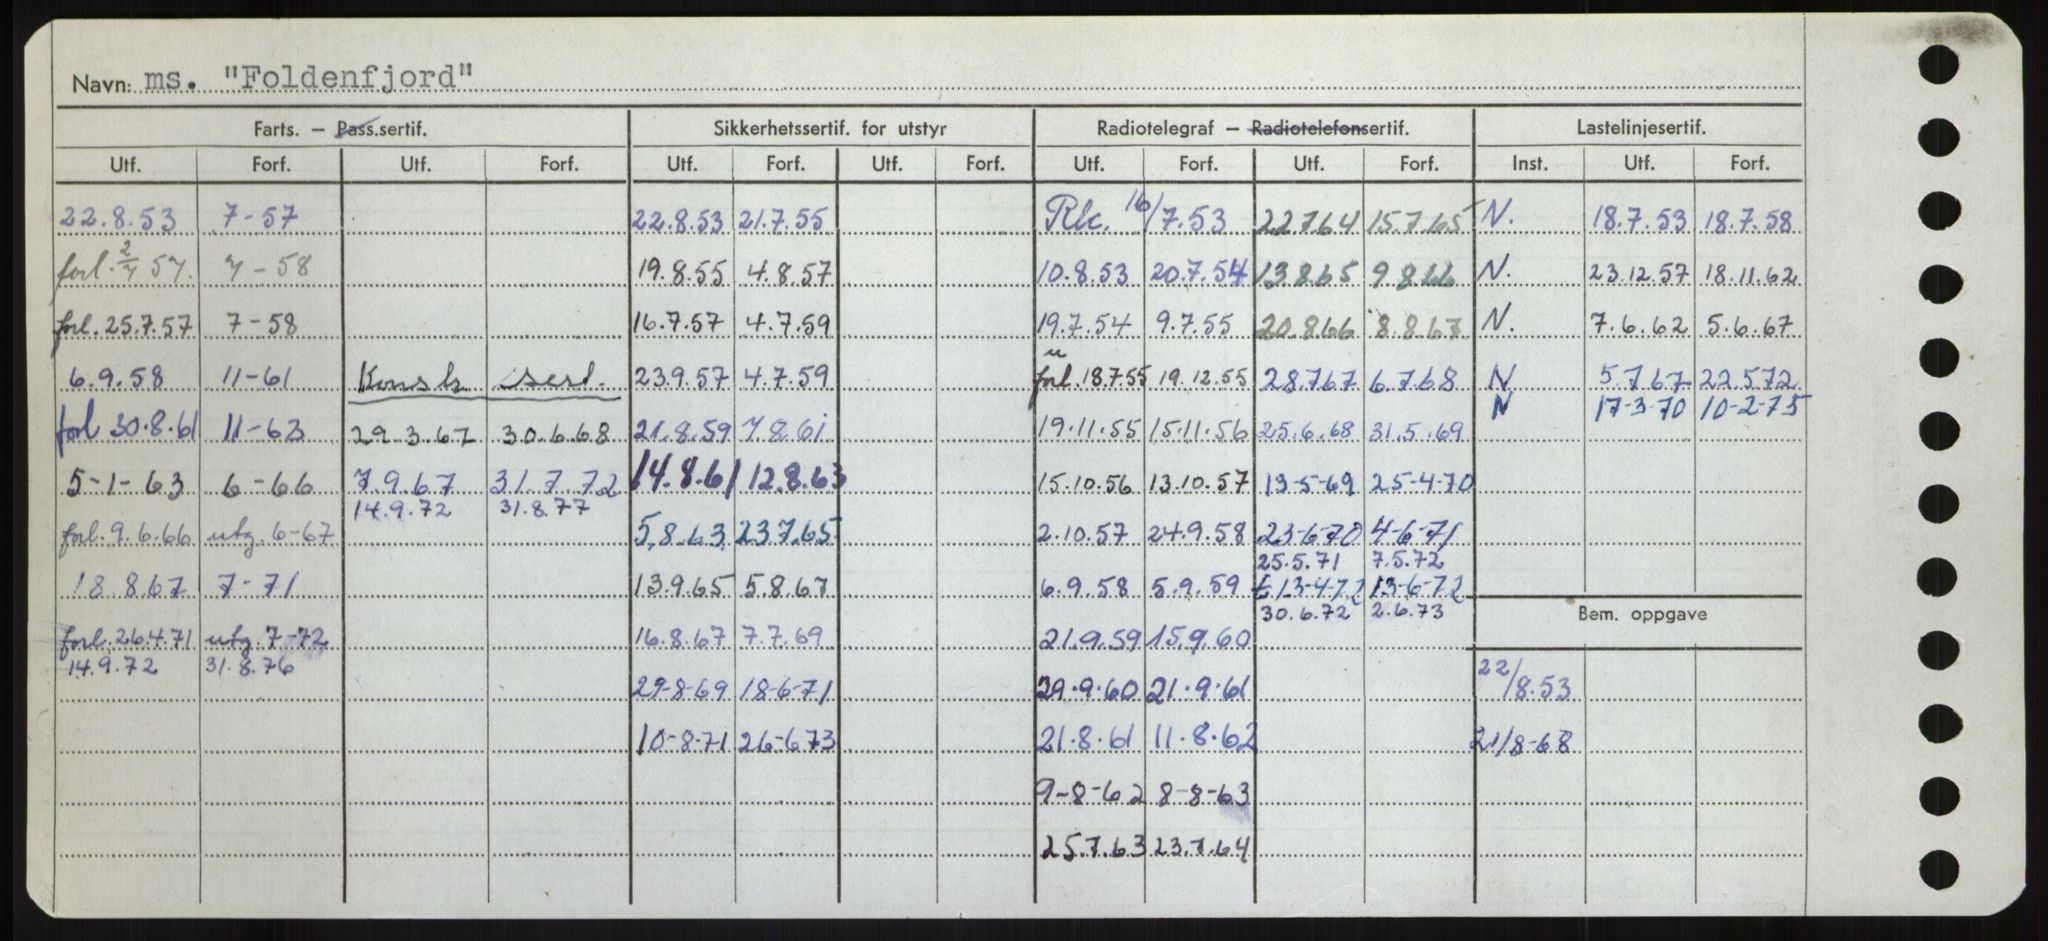 Navn: ms. "Foldenfjord"
Farts. — Pass.sertif. Sikkerhetssertif. for utstyr Radiotelegraf — Radiotelefonsertif. Lastelinjesertif.
Utf. Forf. Utf. Forf. Utf. Forf. Utf. Forf. Utf. Forf. Utf. Forf. Inst. Utf. Forf.
22.8.53 7-57 22.8.53 21.7.55 Rk. 16/7.53 22.7.64 15.7.65 N. 18.7.53 18.7.58
forl. 2/7 57. 7-58 19.8.55 4.8.57 10.8.53 20.7.54 13.8.65 9.8.66 N. 23.12.57 18.11.62
forl. 25.7.57 7-58 16.7.57 4.7.59 19.7.54 9.7.55 20.8.66 8.8.67 N. 7.6.62 5.6.67
6.9.58 11-61 Konstr. sert. 23.9.57 4.7.59 forl. 18.7.55 19.12.55 28.7.67 6.7.68 N 5.7.67 22.5.72
N 17-3-70 10-2-75
forl 30.8.61 11-63 29.3.67 30.6.68 21.8.59 7.8.61 19.11.55 15.11.56 25.6.68 31.5.69
5-1-63 6-66 7.9.67 31.7.72 14.8.61 12.8.63 15.10.56 13.10.57 13-5-69 25-4-70
14.9.72 31.8.77
forl. 9.6.66 utg. 6-67 5.8.63 23.7.65 2.10.57 24.9.58 23-6-70 4-6-71
25.5.71 7.5.72
18.8.67 7-71 13.9.65 5.8.67 6.9.58 5.9.59 13-4-72 13-6-72
30.6.72 2.6.73
Bem. oppgave
forl. 26.4.71 utg. 7-72 16.8.67 7.7.69 21.9.59 15.9.60
14.9.72 31.8.76
29-8-69 18-6-71 29.9.60 21.9.61 22/8.53
10-8-71 26-6-73 21.8.61 11.8.62 21/8-68
9-8-62 8-8-63
25.7.63 23.7.64